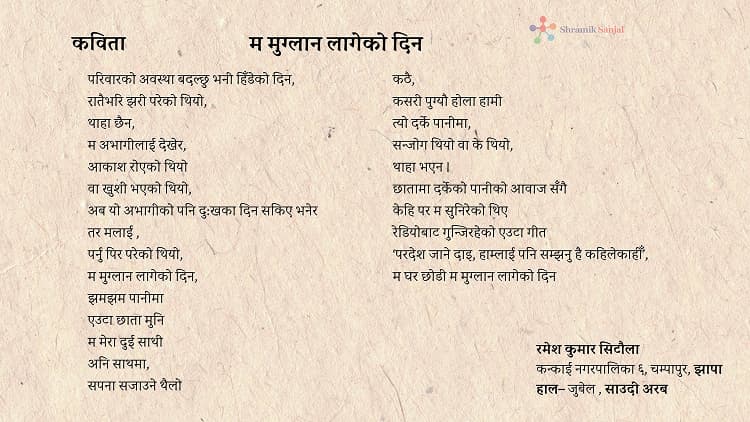 Shramik Sanjal
कविता
म मुग्लान लागेको दिन
परिवारको अवस्था बदल्छु भनी हिँडेको दिन,
रातैभरि झरी परेको थियो,
थाहा छैन,
म अभागीलाई देखेर,
आकाश रोएको थियो
वा खुशी भएको थियो,
अब यो अभागीको पनि दुःखका दिन सकिए भनेर
तर मलाई ,
पर्नु पिर परेको थियो,
म मुग्लान लागेको दिन,
झमझम पानीमा
एउटा छाता मुनि
म मेरा दुई साथी
अनि साथमा,
सपना सजाउने थैलो
कठै,
कसरी पुग्यौ होला हामी
त्यो दर्के पानीमा,
सन्जोग थियो वा के थियो,
थाहा भएन ।
छातामा दर्केको पानीको आवाज सँगै
केहि पर म सुनिरेको थिए
रेडियोबाट गुन्जिरहेको एउटा गीत
‘परदेश जाने दाइ, हाम्लाई पनि सम्झनु है कहिलेकाहीँ’,
म घर छोडी म मुग्लान लागेको दिन
रमेश कुमार सिटौला
कन्काई नगरपालिका ६, चम्पापुर, झापा
हाल– जुबेल , साउदी अरब